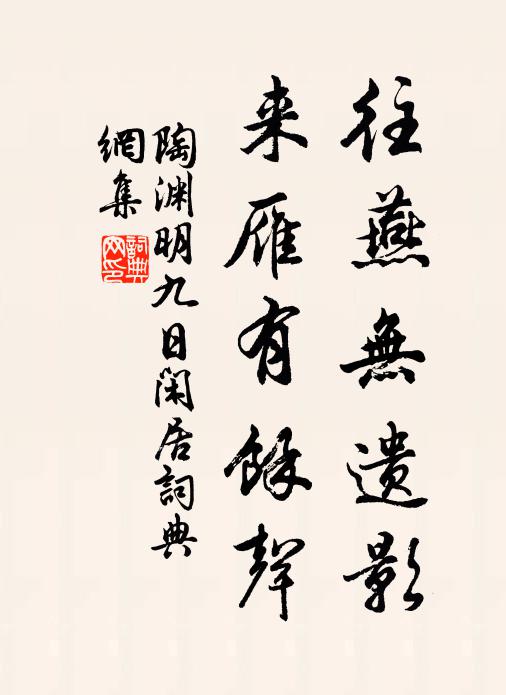 往燕無遗影
来雁有餘聲
陶渊明九日闲居詞典
網集
詞典
网印